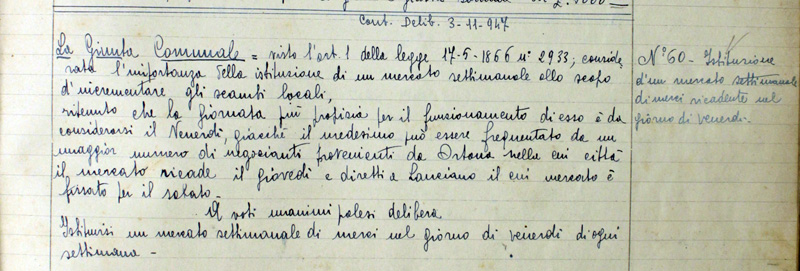 Cont. Delib. 3-11-947
La Giunta Comunale = visto l'art. 1 della legge 17-5-1866 n° 2933; conside
rata l'importanza della istituzione di un mercato settimanale allo scopo
d'incrementare gli scambi locali,
ritenuto che la giornata più propizia per il funzionamento di esso è da
considerarsi il Venerdì, giacché il medesimo può essere frequentato da un
maggior numero di negozianti provenienti da Ortona nella cui città
il mercato ricade il giovedì e diretti a Lanciano il cui mercato è
fissato per il sabato.
A voti unanimi palesi delibera
Istituirsi un mercato settimanale di merci nel giorno di venerdì di ogni
settimana -
N° 60 - Istituzione
d'un mercato settimanale
di merci ricadente nel
giorno di venerdì.